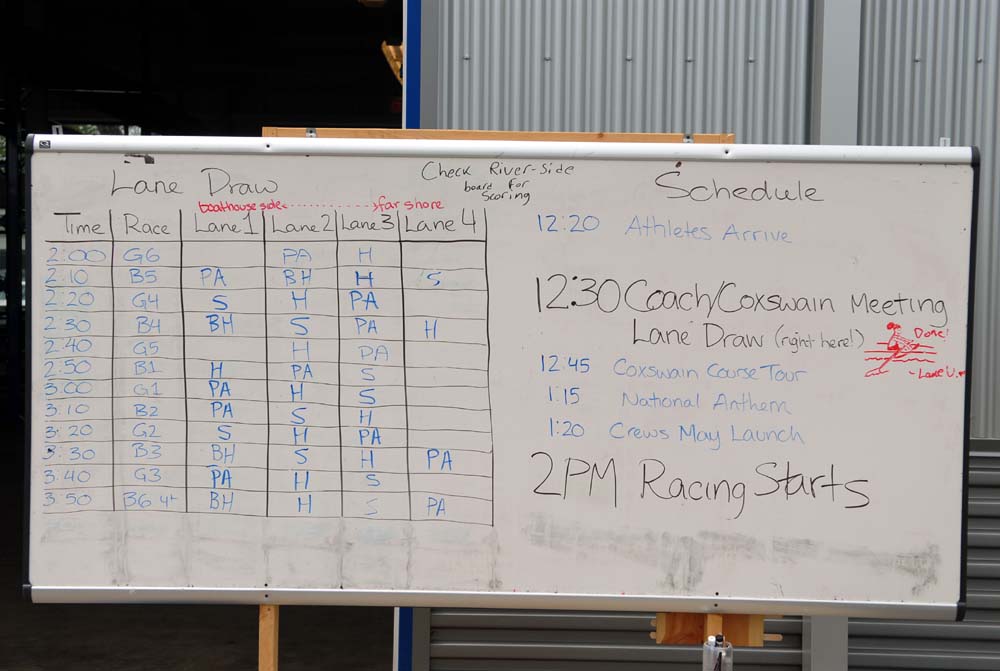 Lane Draw
Check River-Side
board for
Scoring
boathouse side far shore
Time Race Lane 1 Lane 2 Lane 3 Lane 4
2:00 G6 PA H
2:10 B5 PA BH H S
2:20 G4 S H PA
2:30 B4 BH S PA H
2:40 G5 H PA
2:50 B1 H PA S
3:00 G1 PA H S
3:10 B2 PA S H
3:20 G2 S H PA
3:30 B3 BH S H PA
3:40 G3 PA H S
3:50 B6 4+ BH H S PA
Schedule
12:20 Athletes Arrive
12:30 Coach/Coxswain Meeting
Lane Draw (right here!)
Done!
12:45 Coxswain Course Tour
1:15 National Anthem
1:20 Crews May Launch
2PM Racing Starts